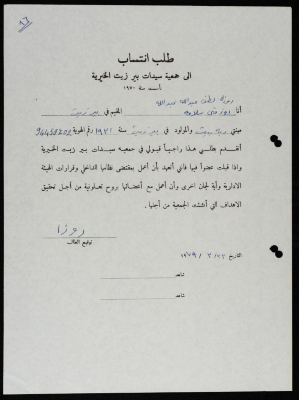 طلب انتساب
الى جمعية سيدات بير زيت الخيرية
تأسست سنة ١٩٧٠
عبدالله عبدالله
أنا المقيم في بيرزيت
مهنتي والمولود في بير زيت سنة ١٩٣١ رقم الهوية
أتقدم بطلبي هذا راجياً قبولي في جمعية سيدات بير زيت الخيرية
واذا قبلت عضواً فيها فاني أتعهد بأن أعمل بمقتضى نظامها الداخلي وقرارات الهيئة
الادارية وأية لجان اخرى وأن أعمل مع أعضائها بروح تعاونية من أجل تحقيق
الاهداف التي أنشئت الجمعية من أجلها .
توقيع الطالب
التاريخ ٢٢/ ٣ / ١٩٧٩
شاهد
شاهد